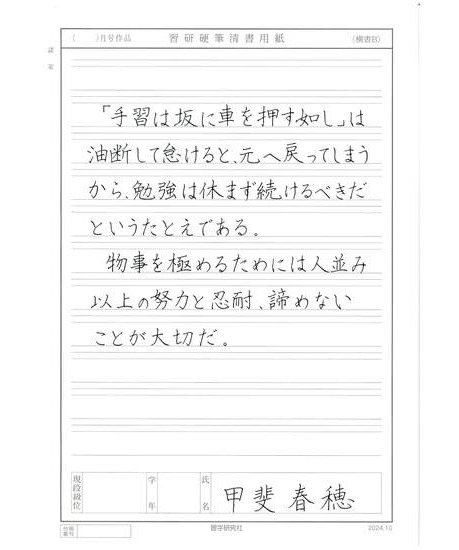 ( )月号作品 習研硬筆清書用紙 (横書B)
認定
「手習は坂に車を押す如し」は
油断して怠けると、元へ戻ってしまう
から、勉強は休まず続けるべきだ
というたとえである。
物事を極めるためには人並み
以上の努力と忍耐、諦めない
ことが大切だ。
現段級位 学年 氏名 甲斐春穂
習学研究社 2024.10